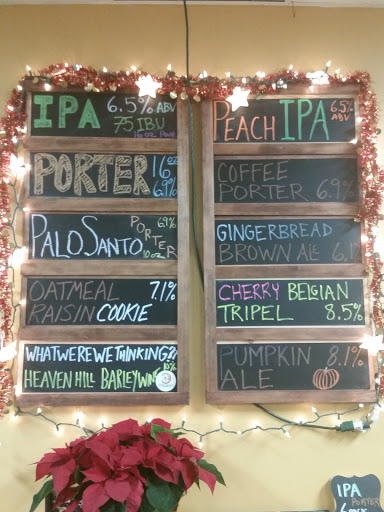 IPA 6.5% ABV
75 IBU
16 OZ
PORTER 16 OZ
6.9%
PALO SANTO PORTER 6.9%
10 OZ
OATMEAL 7.1%
RAISIN COOKIE
WHAT WERE WE THINKING?!
10%
HEAVEN HILL BARLEYWINE
PEACH IPA 6.5% ABV
COFFEE
PORTER 6.9%
GINGERBREAD
BROWN ALE 6.1
CHERRY BELGIAN
TRIPEL 8.5%
PUMPKIN 8.1%
ALE
IPA
PORTER